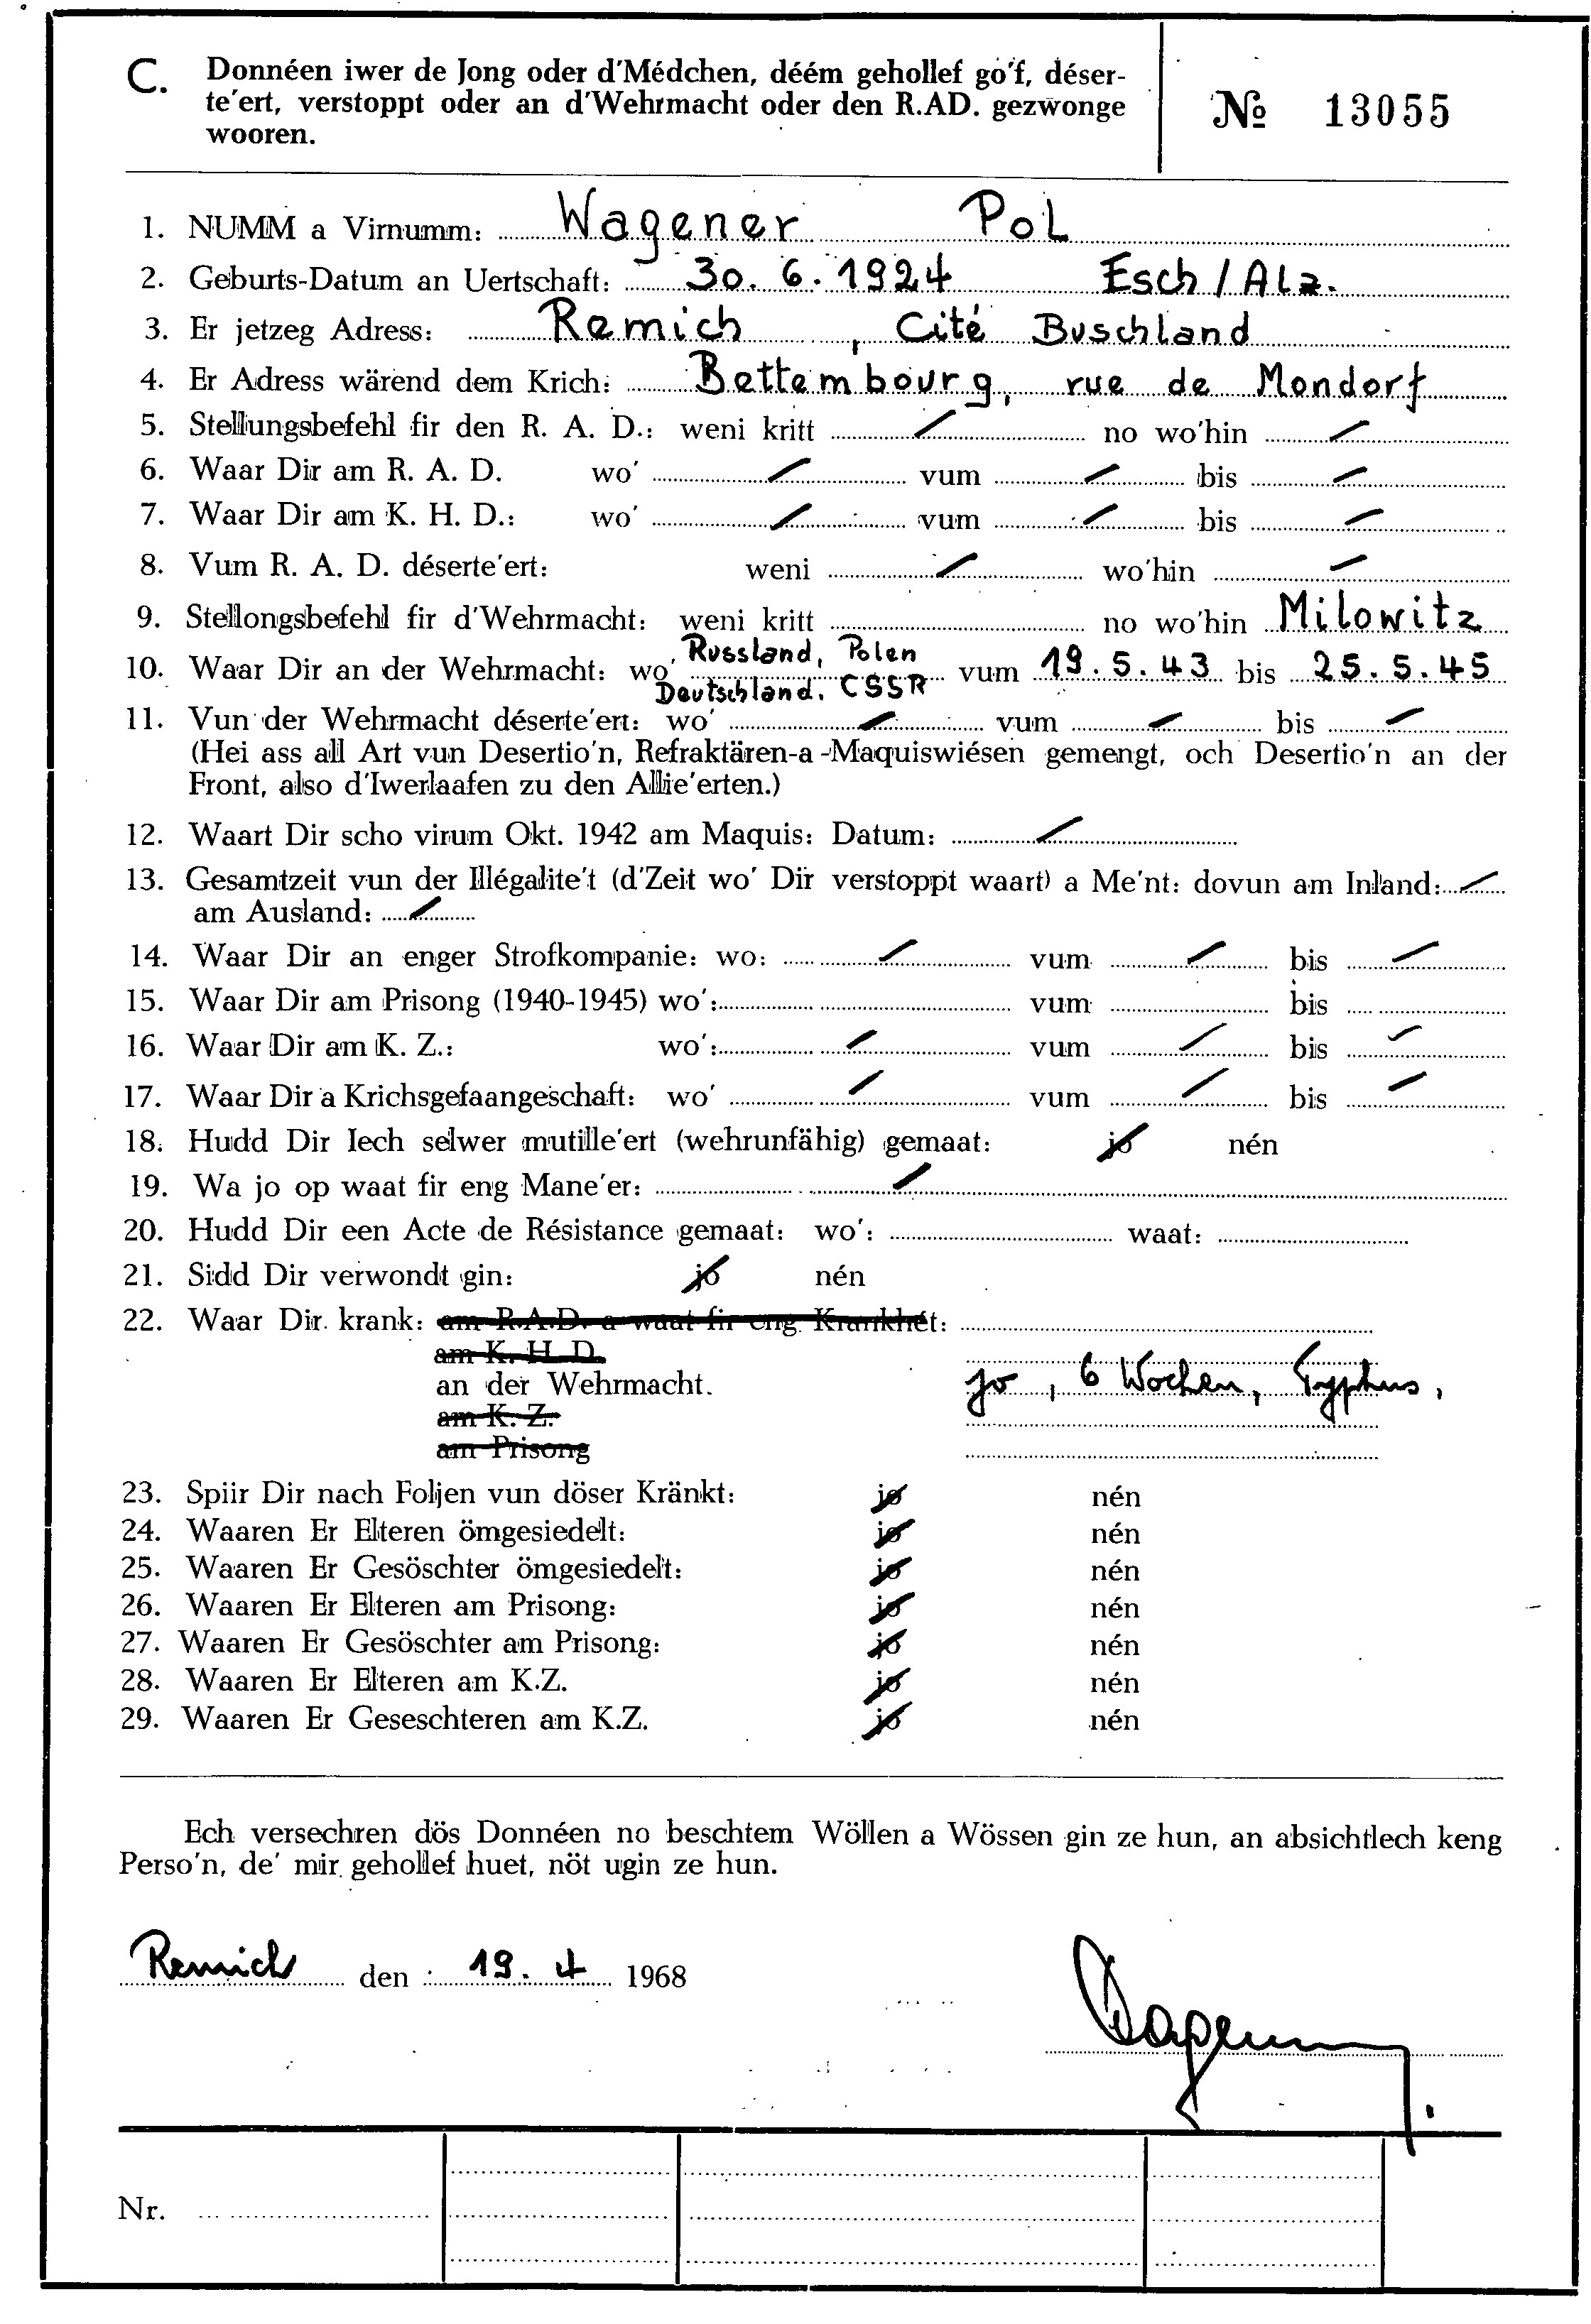 C. Donnéen iwer de Jong oder d'Médchen, déém gehollef go'f, déser-
te'ert, verstoppt oder an d'Wehrmacht oder den R.AD. gezwonge
wooren.
№ 13055
1. NUMM a Virnumm: Wagener Pol
2. Geburts-Datum an Uertschaft: 30. 6. 1924 Esch / Alz.
3. Er jetzeg Adress: Remich, Cité Buschland
4. Er Adress wärend dem Krich: Bettembourg, rue de Mondorf
5. Stellungsbefehl fir den R. A. D.: weni kritt / no wo'hin /
6. Waar Dir am R. A. D. wo' / vum / bis /
7. Waar Dir am K. H. D.: wo' / vum / bis /
8. Vum R. A. D. déserte'ert: weni / wo'hin /
9. Stellongsbefehl fir d'Wehrmacht: weni kritt no wo'hin Milowitz
10. Waar Dir an der Wehrmacht: wo' Russland, Polen
Deutschland, CSSR vum 19. 5. 43 bis 25. 5. 45
11. Vun der Wehrmacht déserte'ert: wo' / vum / bis /
(Hei ass all Art vun Desertio'n, Refraktären-a -Maquiswiésen gemengt, och Desertio'n an der
Front, also d'Iwerlaafen zu den Allie'erten.)
12. Waart Dir scho virum Okt. 1942 am Maquis: Datum: /
13. Gesamtzeit vun der Illégalite't (d'Zeit wo' Dir verstoppt waart) a Me'nt: dovun am Inland: /
am Ausland: /
14. Waar Dir an enger Strofkompanie: wo: / vum / bis /
15. Waar Dir am Prisong (1940-1945) wo': vum bis
16. Waar Dir am K. Z.: wo': / vum / bis /
17. Waar Dir a Krichsgefaangeschaft: wo' / vum / bis /
18. Hudd Dir Iech selwer mutille'ert (wehrunfähig) gemaat: jo nén
19. Wa jo op waat fir eng Mane'er: /
20. Hudd Dir een Acte de Résistance gemaat: wo': waat:
21. Sidd Dir verwondt gin: jo nén
22. Waar Dir krank: am R.A.D. a waat fir eng Krankhét:
am K. H. D.
an der Wehrmacht. jo, 6 Wochen, Typhus.
am K. Z.
am Prisong
23. Spiir Dir nach Foljen vun döser Kränkt: jo nén
24. Waaren Er Elteren ömgesiedelt: jo nén
25. Waaren Er Gesöschter ömgesiedelt: jo nén
26. Waaren Er Elteren am Prisong: jo nén
27. Waaren Er Gesöschter am Prisong: jo nén
28. Waaren Er Elteren am K.Z. jo nén
29. Waaren Er Geseschteren am K.Z. jo nén
Ech versechren dös Donnéen no beschtem Wöllen a Wössen gin ze hun, an absichtlech keng
Perso'n, de' mir gehollef huet, nöt ugin ze hun.
Remich den 19. 4 1968
Wagener
Nr.